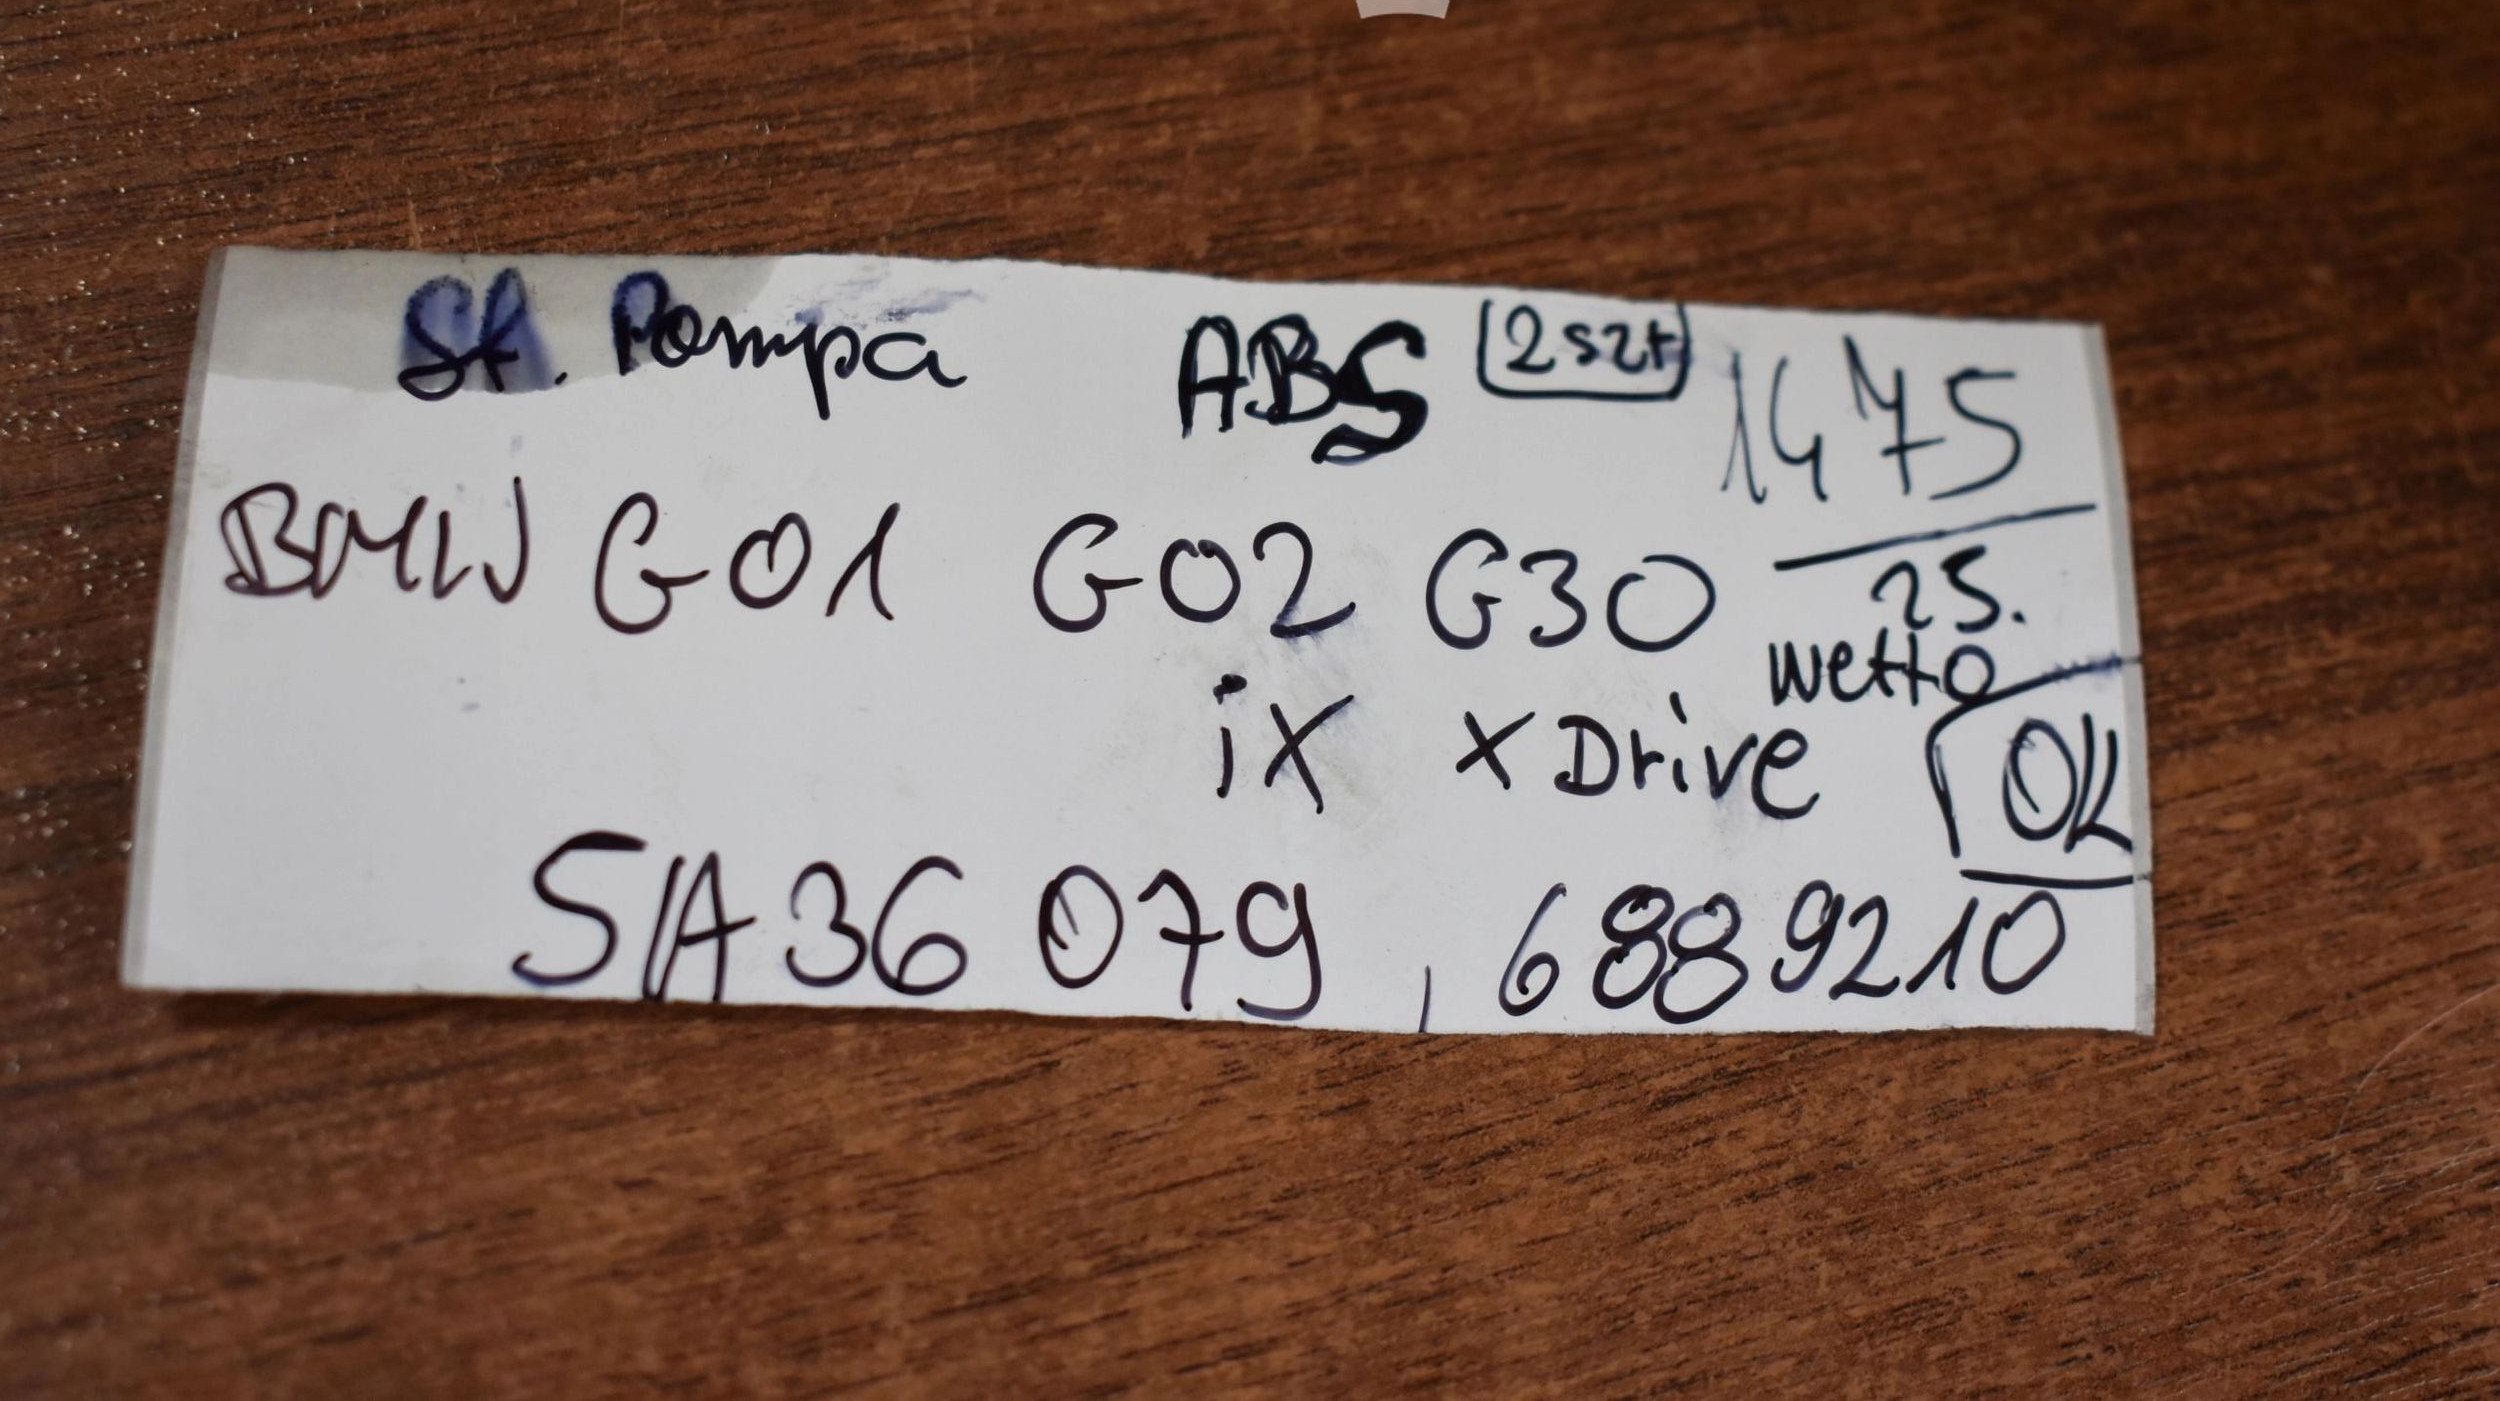 St. Pompa ABS 2szt 1475
BMW G01 G02 G30 25.
netto
iX xDrive OK
5A36079, 6889210